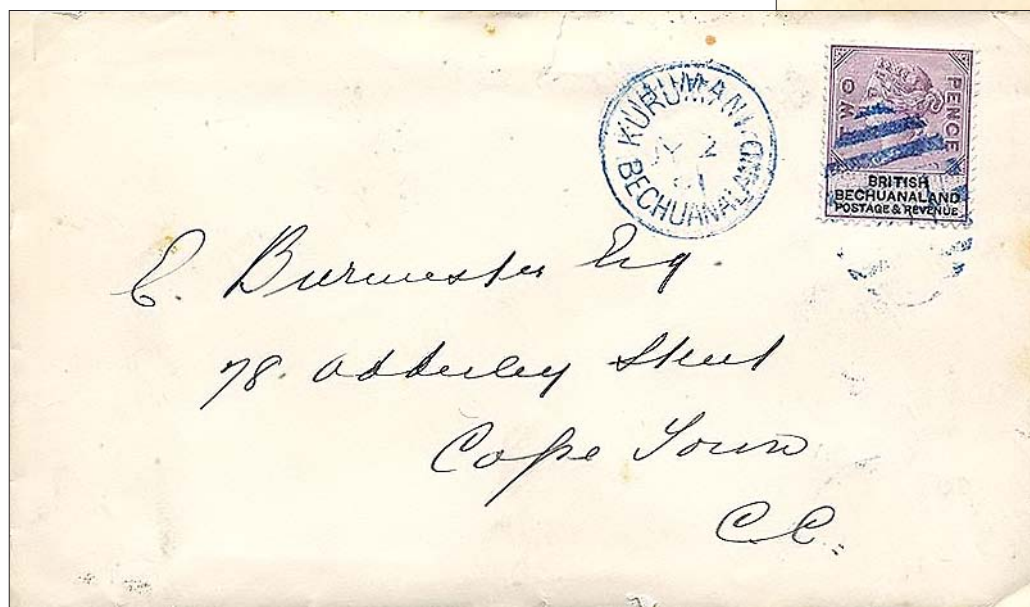 KURUMAN
2
91
BECHUANALAND
TWO PENCE
BRITISH
BECHUANALAND
POSTAGE & REVENUE
C. Burmester Esq.
78. Adderley Street
Cape Town
C.C.